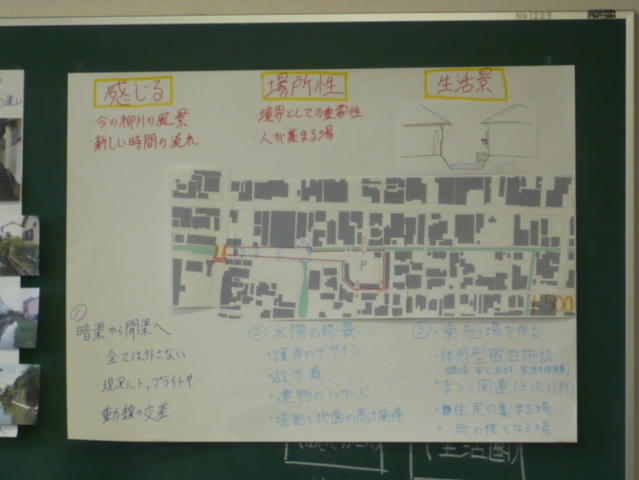 No1229
感じる
・今の柳川の風景
新しい時間の流れ
場所性
・境界としての重要性
・人が集まる場
生活景
P
1:500
①
暗渠から開渠へ
・全ては外さない
現況にトップライトや
動線の交差
② 水際の修景
・護岸のデザイン
・遊歩道
・建物のファサード
・堀割と地面の高さ関係
③・乗船場を作る
・体感型宿泊施設
・まつり関連(3.10.11月)
・住民の集まる場
・町の核となる場
(生活圏)